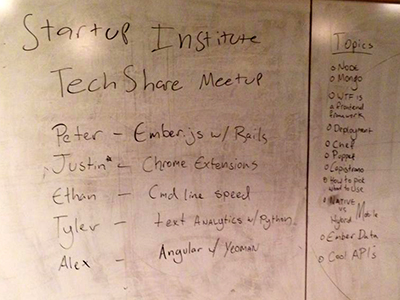 Startup Institute
TechShare Meetup
Peter - Ember.js w/ Rails
Justin - Chrome Extensions
Ethan - Cmd line speed
Tyler - text Analytics w/ Python
Alex - Angular w/ Yeoman
Topics
o Node
o Mongo
o WTF is
a frontend
framework
o Deployment
o Chef
o Puppet
o Capistrano
o How to pick
what to use
o Native
vs
Hybrid Mobile
o Ember Data
o Cool API's